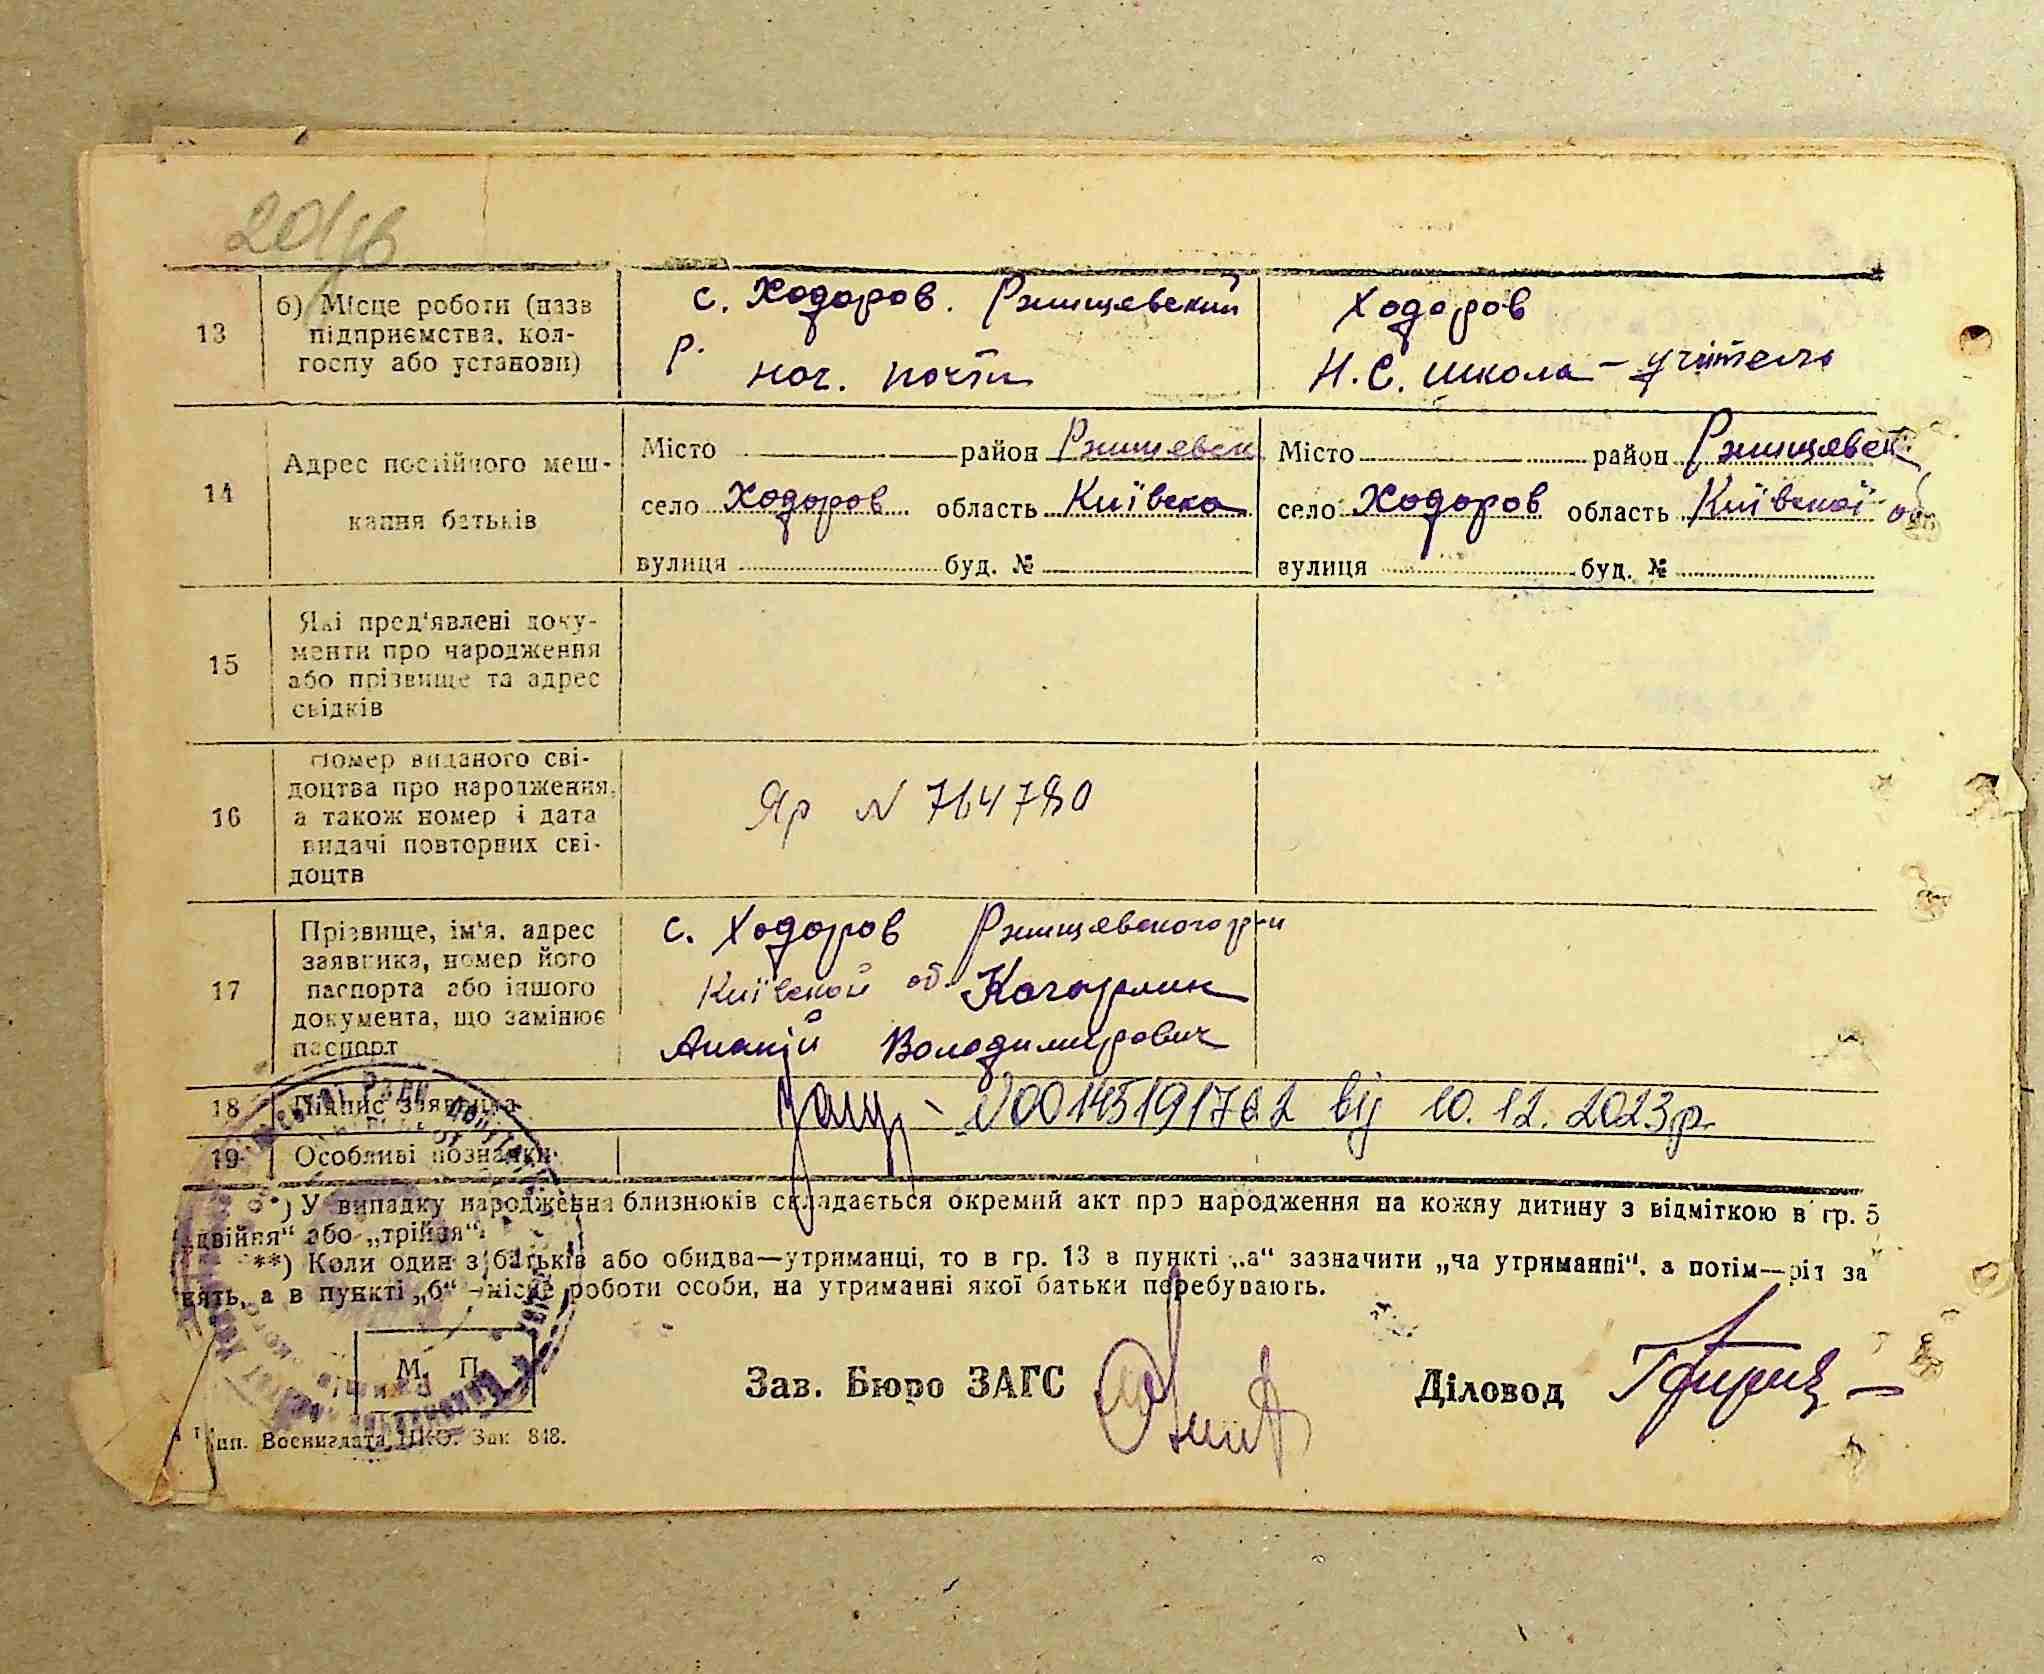 13
б) Місце роботи (назв
підприємства, кол-
госпу або установи)
с. Ходоров. Ржищевский
р.
нач. почти
Ходоров
Н.С. школа – учітель
14
Адрес постійного меш-
кання батьків
Місто район Ржищевск
село Ходоров область Київска
вулиця буд. №
Місто район Ржищевск
село Ходоров область Київскої об
вулиця буд. №
15
Які пред'явлені доку-
менти про народження
або прізвище та адрес
свідків
16
Номер виданого сві-
доцтва про народження,
а також номер і дата
видачі повторних сві-
доцтв
Яр N 764780
17
Прізвище, ім'я, адрес
заявника, номер його
паспорта або іншого
документа, що замінює
паспорт
с. Ходоров Ржищевского р-н
Київской об. Кагарлик
Ананій Володимирович
18 Підпис заявника
N00145191762 від 10.12.2023р.
19 Особливі позначки
*) У випадку народження близнюків складається окремий акт про народження на кожну дитину з відміткою в гр. 5
„двійня“ або „трійня“.
**) Коли один з батьків або обидва—утриманці, то в гр. 13 в пункті „а“ зазначити „на утриманні“, а потім—рід за
нять, а в пункті „б“ —місце роботи особи, на утриманні якої батьки перебувають.
М. П.
Зав. Бюро ЗАГС
Діловод
Тип. Воениздата НКО. Зак. 818.